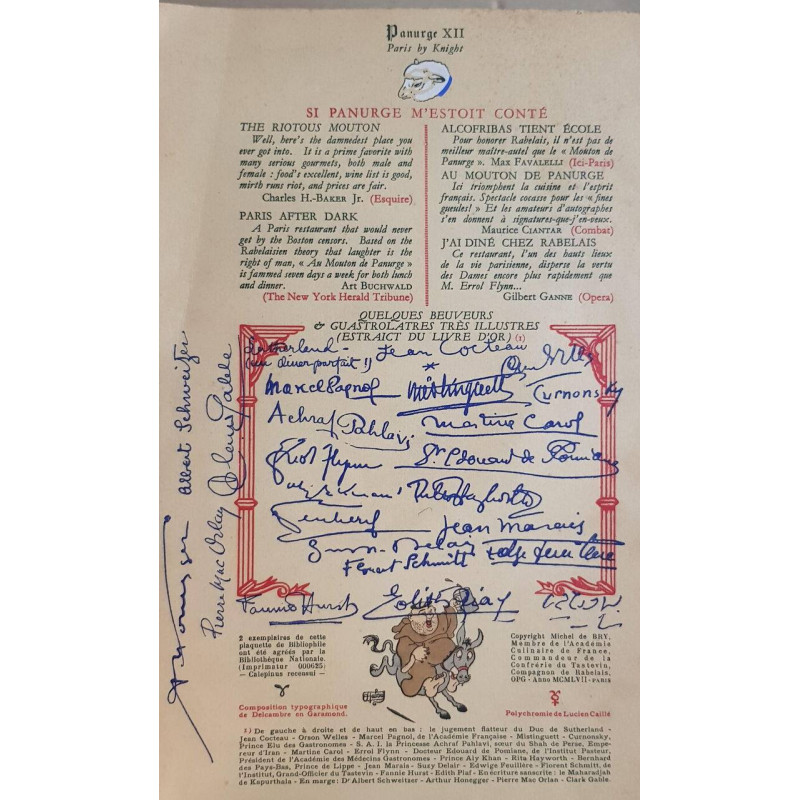 Panurge XII
Paris by Knight
SI PANURGE M'ESTOIT CONTÉ
THE RIOTOUS MOUTON
Well, here's the damnedest place you
ever got into. It is a prime favorite with
many serious gourmets, both male and
female : food's excellent, wine list is good,
mirth runs riot, and prices are fair.
Charles H.-BAKER Jr. (Esquire)
PARIS AFTER DARK
A Paris restaurant that would never
get by the Boston censors. Based on the
Rabelaisien theory that laughter is the
right of man, « Au Mouton de Panurge »
is jammed seven days a week for both lunch
and dinner. Art BUCHWALD
(The New York Herald Tribune)
ALCOFRIBAS TIENT ÉCOLE
Pour honorer Rabelais, il n'est pas de
meilleur maître-autel que le « Mouton de
Panurge ». MAX FAVALELLI (Ici-Paris)
AU MOUTON DE PANURGE
Ici triomphent la cuisine et l'esprit
français. Spectacle cocasse pour les « fines
gueules! » Et les amateurs d'autographes
s'en donnent à signatures-que-j'en-veux.
Maurice CIANTAR (Combat)
J'AI DINÉ CHEZ RABELAIS
Ce restaurant, l'un des hauts lieux
de la vie parisienne, disperse la vertu
des Dames encore plus rapidement que
M. Errol Flynn...
Gilbert GANNE (Opera)
QUELQUES BEUVEURS
& GUASTROLATRES TRÈS ILLUSTRES
(ESTRAICT DU LIVRE D'OR) (1)
Sutherland - Jean Cocteau
(un dîner parfait !)
Marcel Pagnol Mistinguett Curnonsky
Achraf Pahlavi Martine Carol
Errol Flynn Dr Edouard de Pomiane
Rita Hayworth
Jean Marais
Suzy Delair
Florent Schmitt
Fannie Hurst Edith Piaf
Albert Schweitzer
Pierre Mac Orlan Clark Gable
A Honegger
2 exemplaires de cette
plaquette de Bibliophilie
ont été agréés par la
Bibliothèque Nationale.
(Imprimatur 000625)
- Calepinus recensui -
Composition typographique
de Delcambre en Garamond.
Copyright Michel de BRY,
Membre de l'Académie
Culinaire de France,
Commandeur de la
Confrérie du Tastevin,
Compagnon de Rabelais,
OPG - ANNO MCMLVII - PARIS
Polychromie de Lucien Caillé
1) De gauche à droite et de haut en bas : le jugement flatteur du Duc de Sutherland -
Jean Cocteau - Orson Welles - Marcel Pagnol, de l'Académie Française - Mistinguett - Curnonsky,
Prince Elu des Gastronomes - S. A. I. la Princesse Achraf Pahlavi, sœur du Shah de Perse, Empe-
reur d'Iran - Martine Carol - Errol Flynn - Docteur Edouard de Pomiane, de l'Institut Pasteur,
Président de l'Académie des Médecins Gastronomes - Prince Aly Khan - Rita Hayworth - Bernhard
des Pays-Bas, Prince de Lippe - Jean Marais - Suzy Delair - Edwige Feuillère - Florent Schmitt, de
l'Institut, Grand-Officier du Tastevin - Fannie Hurst - Edith Piaf - En écriture sanscrite : le Maharadjah
de Kapurthala - En marge : Dr Albert Schweitzer - Arthur Honegger - Pierre Mac Orlan - Clark Gable.